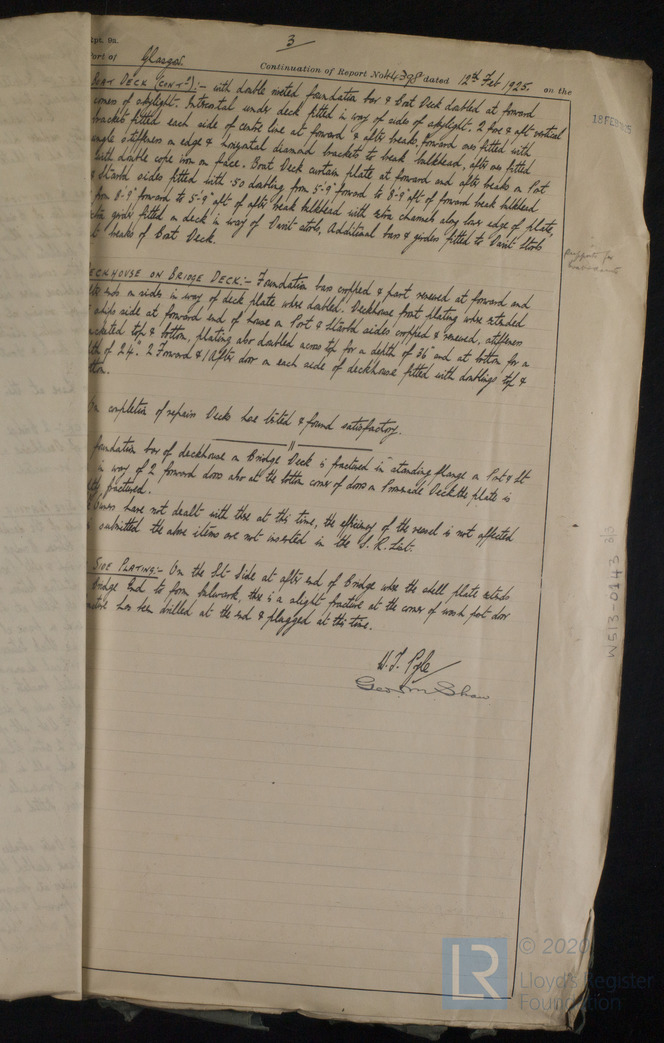 3
Rpt. 9a.
Port of Glasgow Continuation of Report No 44398 dated 12th Feb 1925. on the
BOAT DECK (CONTD):- with double riveted foundation bar & Boat Deck doubled at forward
corners of skylight. Intercostal under deck fitted in way of side of skylight. 2 fore & aft vertical
brackets fitted each side of centre line at forward & after breaks, forward ones fitted with
angle stiffeners on edge & horizontal diamond brackets to break bulkhead, after ones fitted
with double cope iron on face. Boat Deck curtain plate at forward and after breaks on Port
& Starbd sides fitted with .50 doubling from 5'-9" forward to 8'-9" aft of forward break bulkhead
& from 8'-9" forward to 5'-9" aft of after break bulkhead with extra channels along lower edge of plate,
girder fitted on deck in way of Davit stools, Additional bars & girders fitted to Davit Stools
at breaks of Boat Deck.
DECKHOUSE ON BRIDGE DECK:- Foundation bars cropped & part renewed at forward and
ends on sides in way of deck plate where doubled. Deckhouse front plating where extended
side at forward end of house on Port & Starbd sides cropped & renewed, stiffeners
bracketed top & bottom, plating also doubled across top for a depth of 36" and at bottom for a
depth of 24". 2 Forward & 1 After door on each side of deckhouse fitted with doublings top &
bottom.
On completion of repairs Decks hose tested & found satisfactory.
"
Foundation bar of deckhouse on Bridge Deck is fractured in standing flange on Port & St
in way of 2 forward doors also at the bottom corner of doors on Promenade Deck the plate is
slightly fractured.
Owners have not dealt with these at this time, the efficiency of the vessel is not affected
submitted the above items are not inserted in the S. R. List.
SIDE PLATING:- On the St. Side at after end of Bridge where the shell plate extends
Bridge End to form bulwark, there is a slight fracture at the corner of wash port door
fracture has been drilled at the end & plugged at this time.
W. J. Pyle
Geo. M Shaw
18 FEB 1925
W513-0143 3/3
LR
© 2020
Lloyd's Register
Foundation